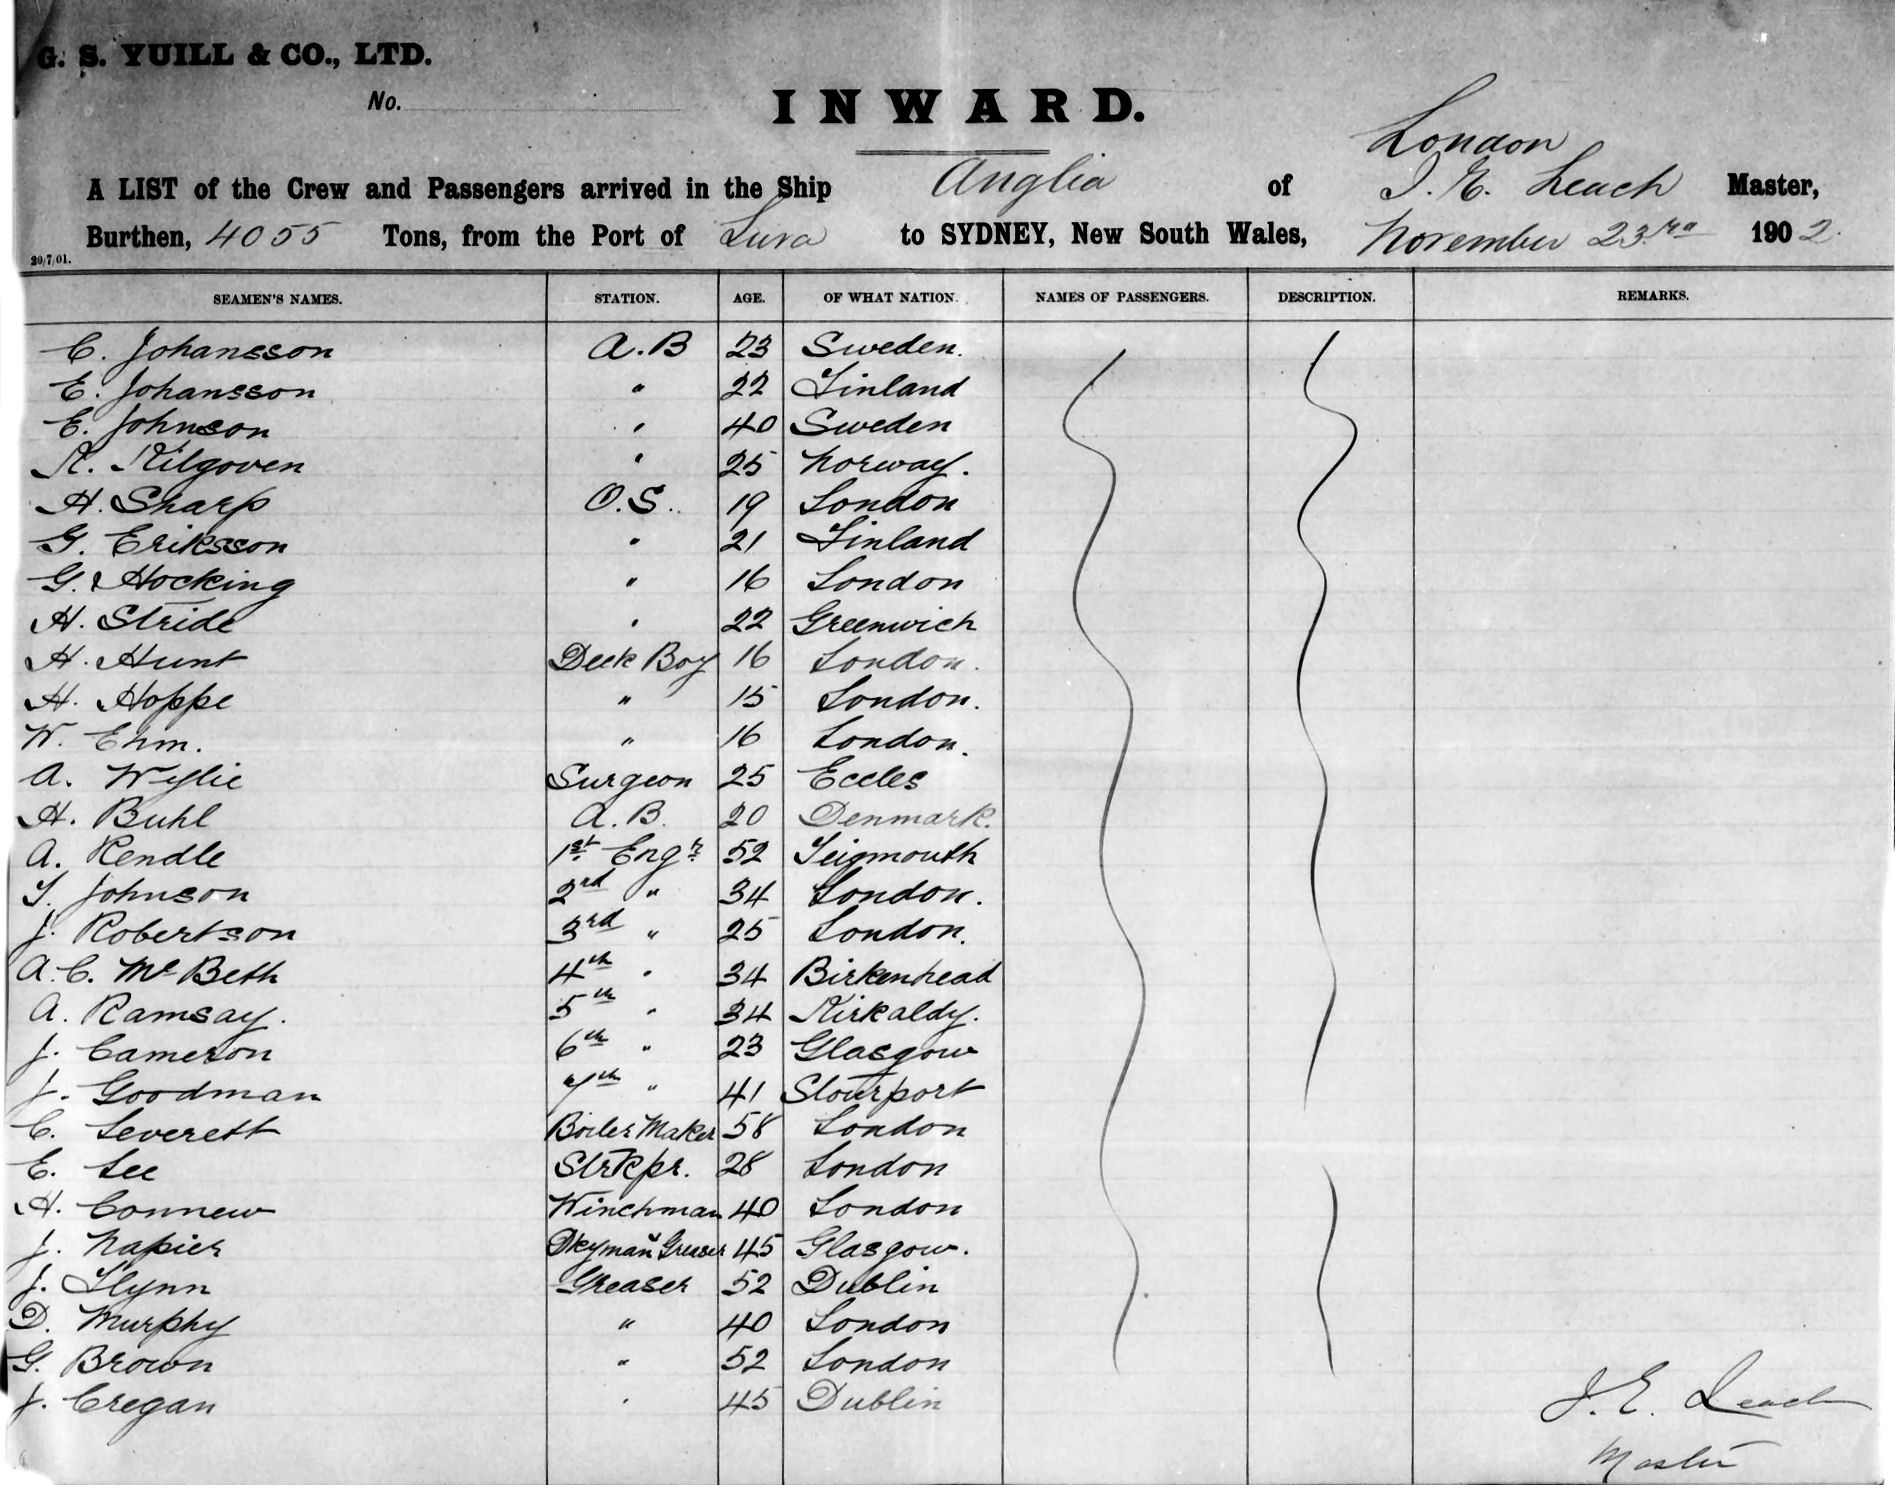 G. S. YUILL & CO., LTD.
No.
INWARD.
London
A LIST of the Crew and Passengers arrived in the Ship Anglia of J. E. Leach Master,
Burthen, 4055 Tons, from the Port of Suva to SYDNEY, New South Wales, November 23rd 1902.
20/7/01.
SEAMEN'S NAMES. STATION. AGE. OF WHAT NATION. NAMES OF PASSENGERS. DESCRIPTION. REMARKS.
C. Johansson A.B 23 Sweden.
E. Johansson " 22 Finland
E. Johnson " 40 Sweden
K. Kilgoven " 25 Norway.
H. Sharp O.S. 19 London
G. Eriksson " 21 Finland
G. Hocking " 16 London
H. Stride " 22 Greenwich
H. Hunt Deck Boy 16 London.
H. Hoppe " 15 London.
W. Ehm. " 16 London.
A. Wylie Surgeon 25 Eccles
H. Buhl A.B. 20 Denmark.
A. Rendle 1st Engr 52 Teigmouth
T. Johnson 2nd " 34 London.
J. Robertson 3rd " 25 London.
A.C. McBeth 4th " 34 Birkenhead
A. Ramsay. 5th " 34 Kirkaldy.
J. Cameron 6th " 23 Glasgow
J. Goodman 7th " 41 Stourport
C. Leverett Boiler Maker 58 London
E. Lee Strkpr. 28 London
H. Connew Winchman 40 London
J. Napier Dkyman & Greaser 45 Glasgow.
J. Flynn Greaser 52 Dublin
D. Murphy " 40 London
G. Brown " 52 London
J. Cregan " 45 Dublin
J. E. Leach
Master